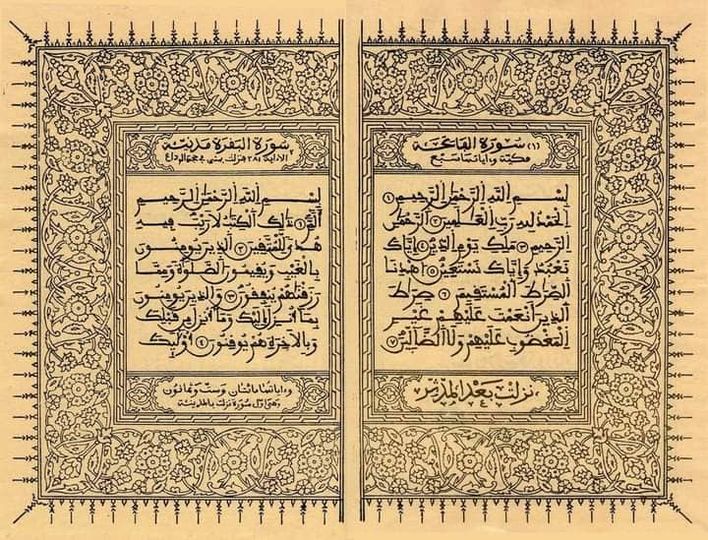 (١) سورة الفاتحة
مكية وآياتها سبع
بِسْمِ اللَّهِ الرَّحْمَٰنِ الرَّحِيمِ ١
الْحَمْدُ لِلَّهِ رَبِّ الْعَٰلَمِينَ ٢ الرَّحْمَٰنِ
الرَّحِيمِ ٣ مَلِكِ يَوْمِ الدِّينِ ٤ إِيَّاكَ
نَعْبُدُ وَإِيَّاكَ نَسْتَعِينُ ٥ اهْدِنَا
الصِّرَٰطَ الْمُسْتَقِيمَ ٦ صِرَٰطَ
الَّذِينَ أَنْعَمْتَ عَلَيْهِمْ غَيْرِ
الْمَغْضُوبِ عَلَيْهِمْ وَلَا الضَّالِّينَ ٧
نزلت بعد المدثر
سورة البقرة مدنية
الا آية ٢٨١ فنزلت بمنى في حجة الوداع
بِسْمِ اللَّهِ الرَّحْمَٰنِ الرَّحِيمِ
الٓمٓ ١ ذَٰلِكَ الْكِتَٰبُ لَا رَيْبَ فِيهِ
هُدًى لِلْمُتَّقِينَ ٢ الَّذِينَ يُؤْمِنُونَ
بِالْغَيْبِ وَيُقِيمُونَ الصَّلَوٰةَ وَمِمَّا
رَزَقْنَٰهُمْ يُنْفِقُونَ ٣ وَالَّذِينَ يُؤْمِنُونَ
بِمَا أُنْزِلَ إِلَيْكَ وَمَا أُنْزِلَ مِنْ قَبْلِكَ
وَبِالْآخِرَةِ هُمْ يُوقِنُونَ ٤ أُولَٰئِكَ
وآياتها مائتان وست وثمانون
وهي أول سورة نزلت بالمدينة